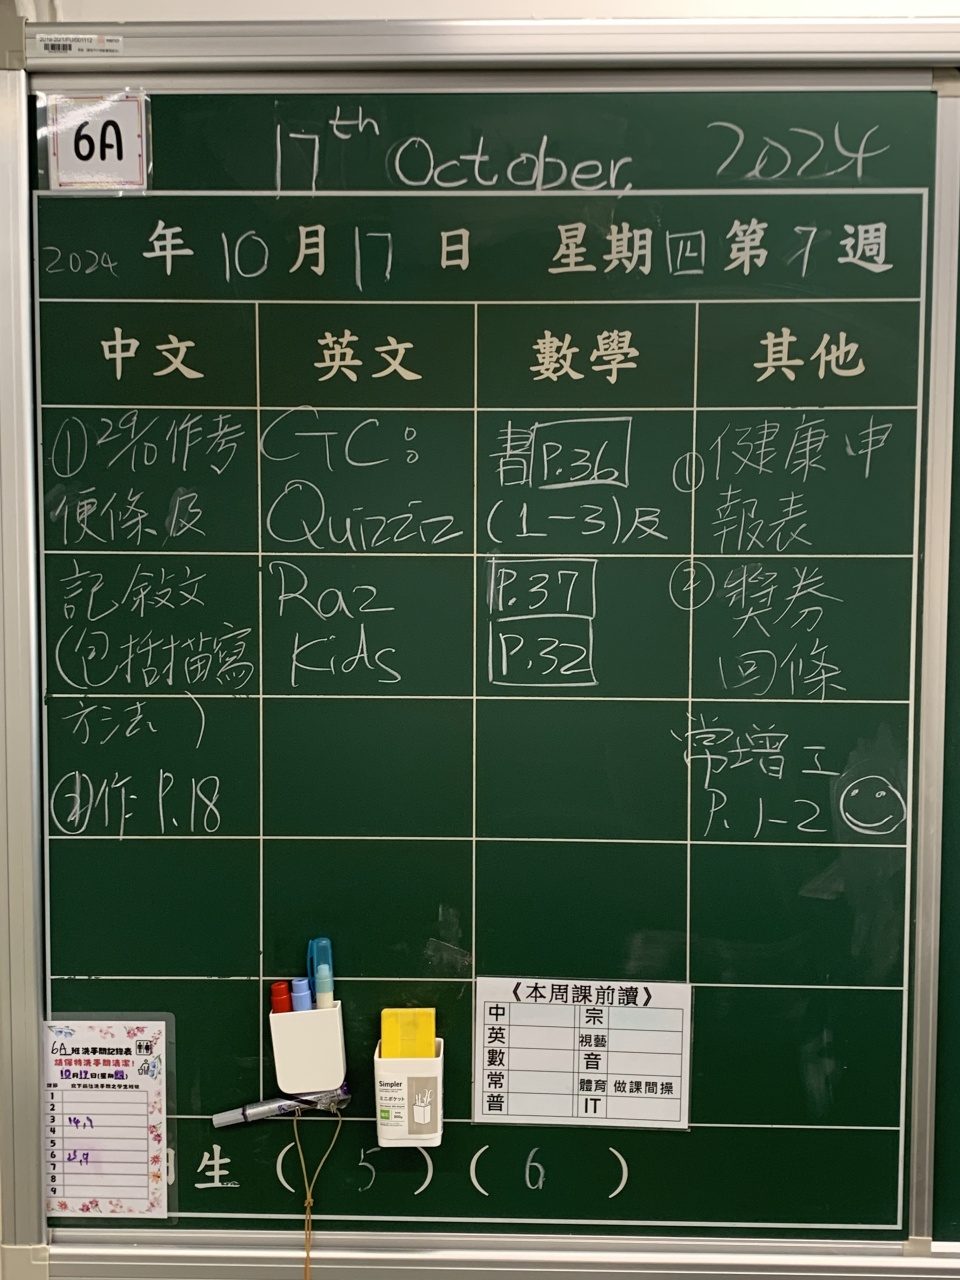 6A
17th October, 2024
2024 年 10 月 17 日 星期四 第 7 週
中文 英文 數學 其他
①29/10作考
便條及
記敘文
(包括描寫
方法)
②作 P.18
GTC:
Quizziz
Raz
Kids
書P.36
(1-3)及
P.37
P.32
①健康申
報表
②獎券
回條
常增工
P.1-2
《本周課前讀》
中 宗
英 視藝
數 音
常 體育 做課間操
普 IT
Simpler
ミニポケット
6A 班洗手間記錄表
請保持洗手間清潔!
10月17日(星期四)
1
2
3 14,9
4
5
6
7
8
9
生 ( 5 ) ( 6 )